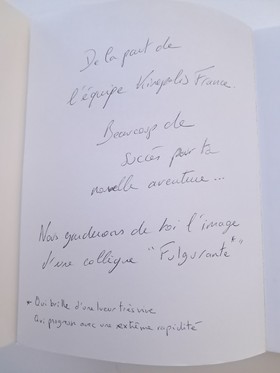 De la part de
l'équipe Kinepolis France.
Beaucoup de
succès pour ta
nouvelle aventure...
Nous garderons de toi l'image
d'une collègue "Fulgurante*"
* Qui brille d'une lueur très vive
Qui progresse avec une extrême rapidité